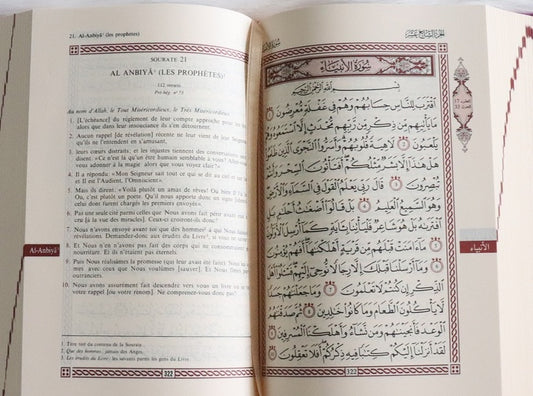 21. Al-Anbiyâ' (les prophètes)
SOURATE 21
AL ANBIYÂ' (LES PROPHÈTES)¹
112 versets
Pré-hég. n° 73
Au nom d'Allah, le Tout Miséricordieux, le Très Miséricordieux.
1. [L'échéance] du règlement de leur compte approche pour les hommes,
alors que dans leur insouciance ils s'en détournent.
2. Aucun rappel [de révélation] récente ne leur vient de leur Seigneur, sans
qu'ils ne l'entendent en s'amusant,
3. leurs cœurs distraits; et les injustes tiennent des conversations secrètes et
disent: «Ce n'est là qu'un être humain semblable à vous? Allez-vous donc
vous adonner à la magie alors que vous voyez clair?»
4. Il a répondu: «Mon Seigneur sait tout ce qui se dit au ciel et sur la terre;
et Il est l'Audient, l'Omniscient».
5. Mais ils dirent: «Voilà plutôt un amas de rêves! Ou bien Il l'a inventé.
Ou, c'est plutôt un poète. Qu'il nous apporte donc un signe [identique] à
celui dont furent chargés les premiers envoyés».
6. Pas une seule cité parmi celles que Nous avons fait périr avant eux n'avait cru
[à la vue des miracles]. Ceux-ci croiront-ils donc?
7. Nous n'avons envoyé avant toi que des hommes² à qui Nous faisions des
révélations. Demandez-donc aux érudits du Livre³, si vous ne savez pas.
8. Et Nous n'en avons pas fait des corps qui ne consommaient pas de
nourriture. Et ils n'étaient pas éternels.
9. Puis Nous réalisâmes la promesse (qui leur avait été faite). Nous les sauvâmes
avec ceux que Nous voulûmes [sauver]. Et Nous fîmes périr les
outranciers.
10. Nous avons assurément fait descendre vers vous un livre où se trouve
votre rappel [ou votre renom]. Ne comprenez-vous donc pas?
1. Titre tiré du contenu de la Sourate.
2. Que des hommes: jamais des Anges.
3. Les érudits du Livre: les savants parmi les gens du Livre.
Al-Anbiyâ'
322
الجزء السابع عشر
سورة الأنبياء
بسم الله الرحمن الرحيم
اقترب للناس حسابهم وهم في غفلة معرضون ١
ما يأتيهم من ذكر من ربهم محدث إلا استمعوه وهم
يلعبون ٢ لاهية قلوبهم وأسروا النجوى الذين ظلموا
هل هذا إلا بشر مثلكم أفتأتون السحر وأنتم
تبصرون ٣ قال ربي يعلم القول في السماء والأرض
وهو السميع العليم ٤ بل قالوا أضغاث أحلام بل
افتراه بل هو شاعر فليأتنا بآية كما أرسل الأولون
٥ ما آمنت قبلهم من قرية أهلكناها أفهم يؤمنون
٦ وما أرسلنا قبلك إلا رجالا نوحي إليهم فاسألوا أهل
الذكر إن كنتم لا تعلمون ٧ وما جعلناهم جسدا
لا يأكلون الطعام وما كانوا خالدين ٨ ثم صدقناهم
الوعد فأنجيناهم ومن نشاء وأهلكنا المسرفين ٩
لقد أنزلنا إليكم كتابا فيه ذكركم أفلا تعقلون ١٠
الأنبياء
322